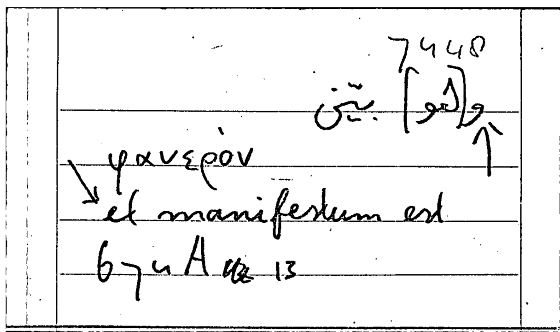 7448
و[هو] بيّن
φανερὸν
et manifestum est
13